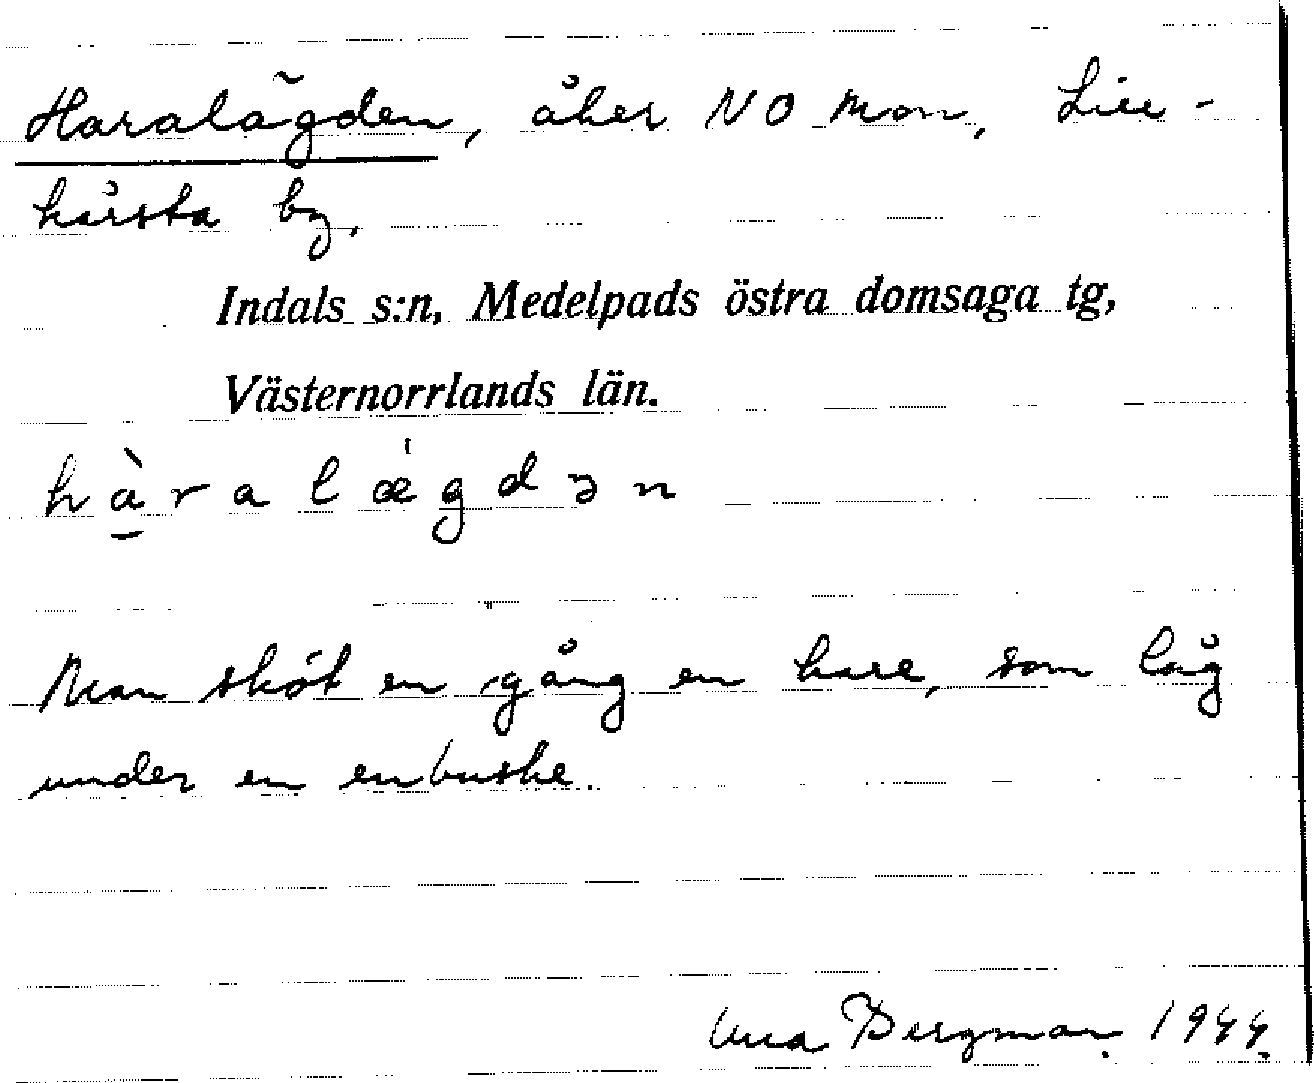 Haralägden, åker NO Mon, Lill-
hårsta by.
Indals s:n, Medelpads östra domsaga tg,
Västernorrlands län.
hàralǽgdən
Man sköt en gång en hare, som låg
under en enbuske.
Bergman 1944.